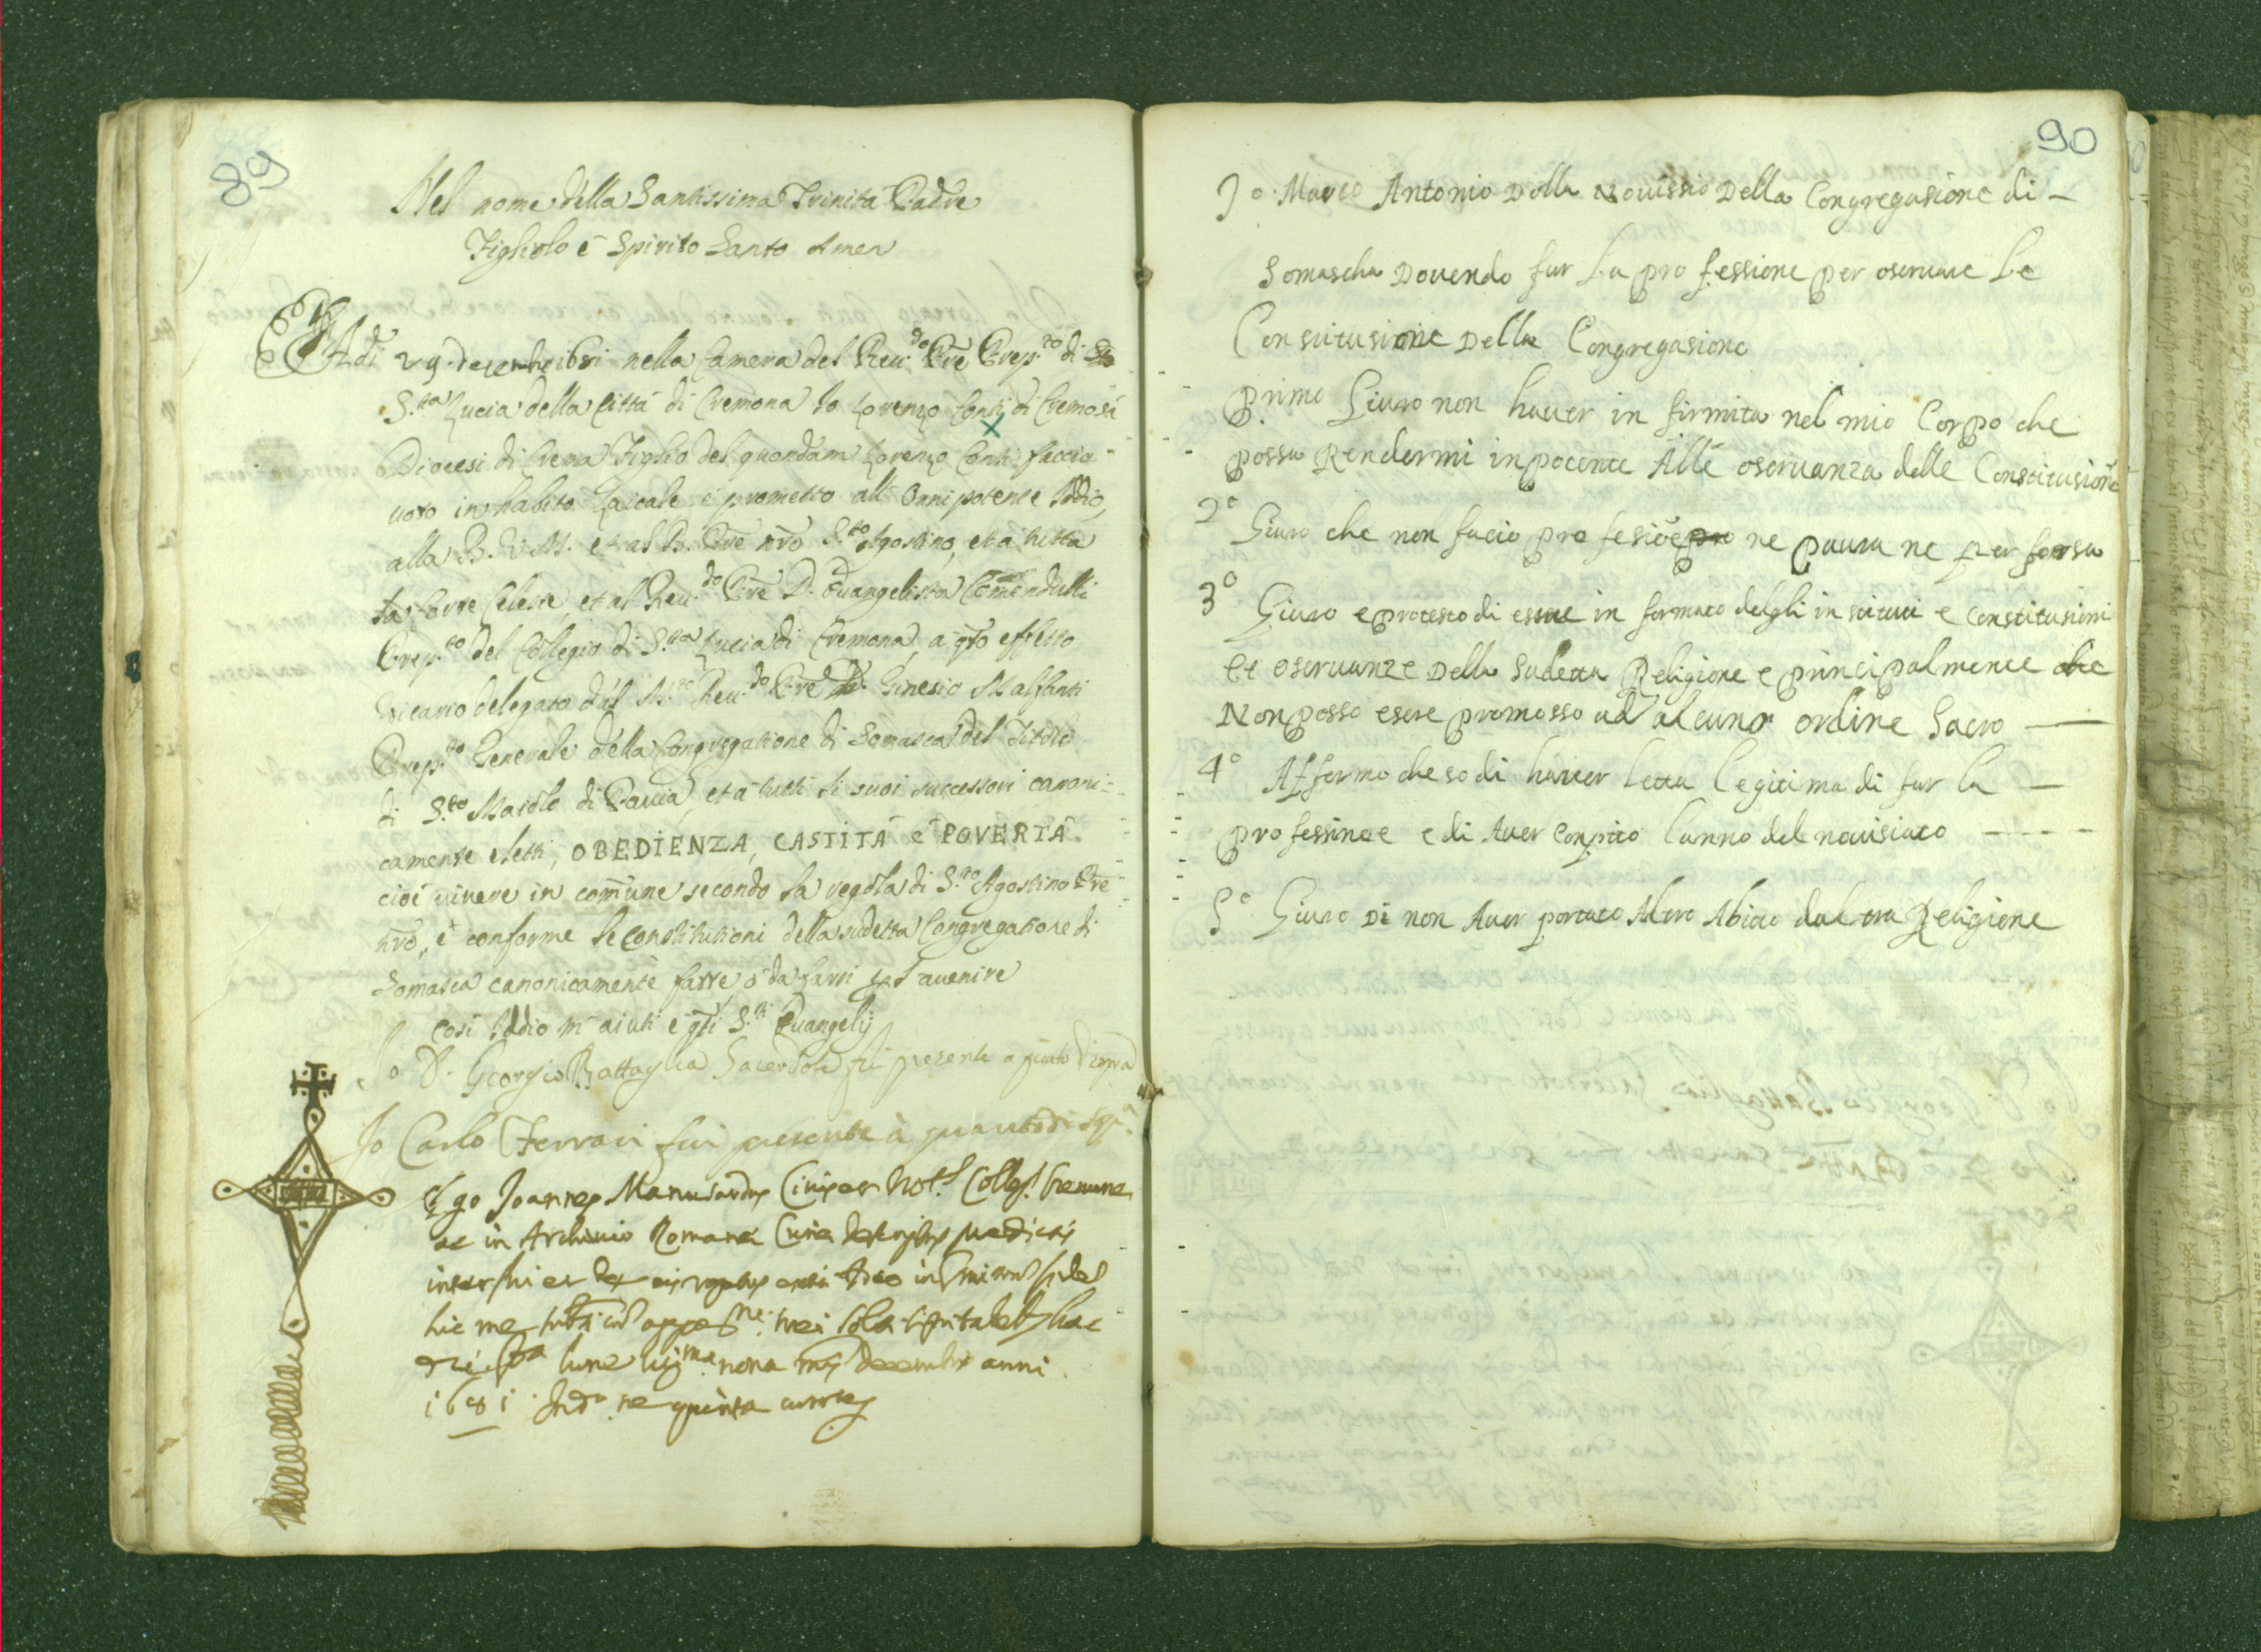 89
Nel nome della Santissima Trinità Padre
Figliolo è Spirito Santo Amen
Adi 29 decembre 1681 nella Camera del Reu.do Pre Prep.to di
S.ta Lucia della Città di Cremona Io Lorenzo Conti di Cremosà
Diocesi di Crema Figlio del quondam Lorenzo Conti faccio
uoto in habito Laicale è prometto all' Onnipotente Iddio,
alla B. V. M. et al B. Pre nro S.to Agostino, et à tutta
la Corte Celeste et al Reu.do Pre D. Euangelista Comendulli
Prep.to del Collegio di S.ta Lucia di Cremona, a qto effetto
Vicario delegato dal M. Reu.do Pre D. Ginesio Malfanti
Prep.to Generale della Congregatione di Somasca del Titolo
di S.to Maiolo di Pauia, et à tutti li suoi successori canoni-
camente eletti, OBEDIENZA, CASTITÀ è POVERTÀ
cioè uiuere in comune secondo la regola di S.to Agostino Pre
nro, è conforme le Constitutioni della sudetta Congregatione di
Somasca canonicamente fatte, ò da farsi per l'auenire
Così Iddio m'aiuti è qti S.ti Euangelij
Io D. Georgio Battaglia Sacerdote fui presente a quato di sopra
Io Carlo Ferrari fui presente à quanto di sop.a
Ego Joannes Manusardus Ciuis ac Not.s Colleg.s Cremone
ac in Archiuio Romane Curie descriptus predictis
interfui et de eis rogatus
hic me subscripsi cum appositione mei soliti tabell. hac
die lune uig.ma nona mensis decembris anni
1681 Ind.ne quinta
90
Io Marco Antonio Dolla Nouissio Della Congregasione di
Somascha Douendo far La professione per oseruare Le
Consuitusione Della Congregasione
Primo Giuro non hauer in firmita nel mio Corpo che
possa Rendermi inpotente Alle oseruanza delle Constitusione
2o Giuro che non facio profesiōe ne paura ne per forsa
3o Giuro e protesto di essere in formato delgli in stituti e Constitusioni
et oseruanze Della Sudetta Religione e principalmente che
Non posso esere promosso ad alcuno ordine Sacro
4o Affermo che so di hauer letta legitima di far la
professinoe e di Auer conpito lanno del nouisiato
5o Giuro Di non Auer portato Altro Abito dal tra Religione